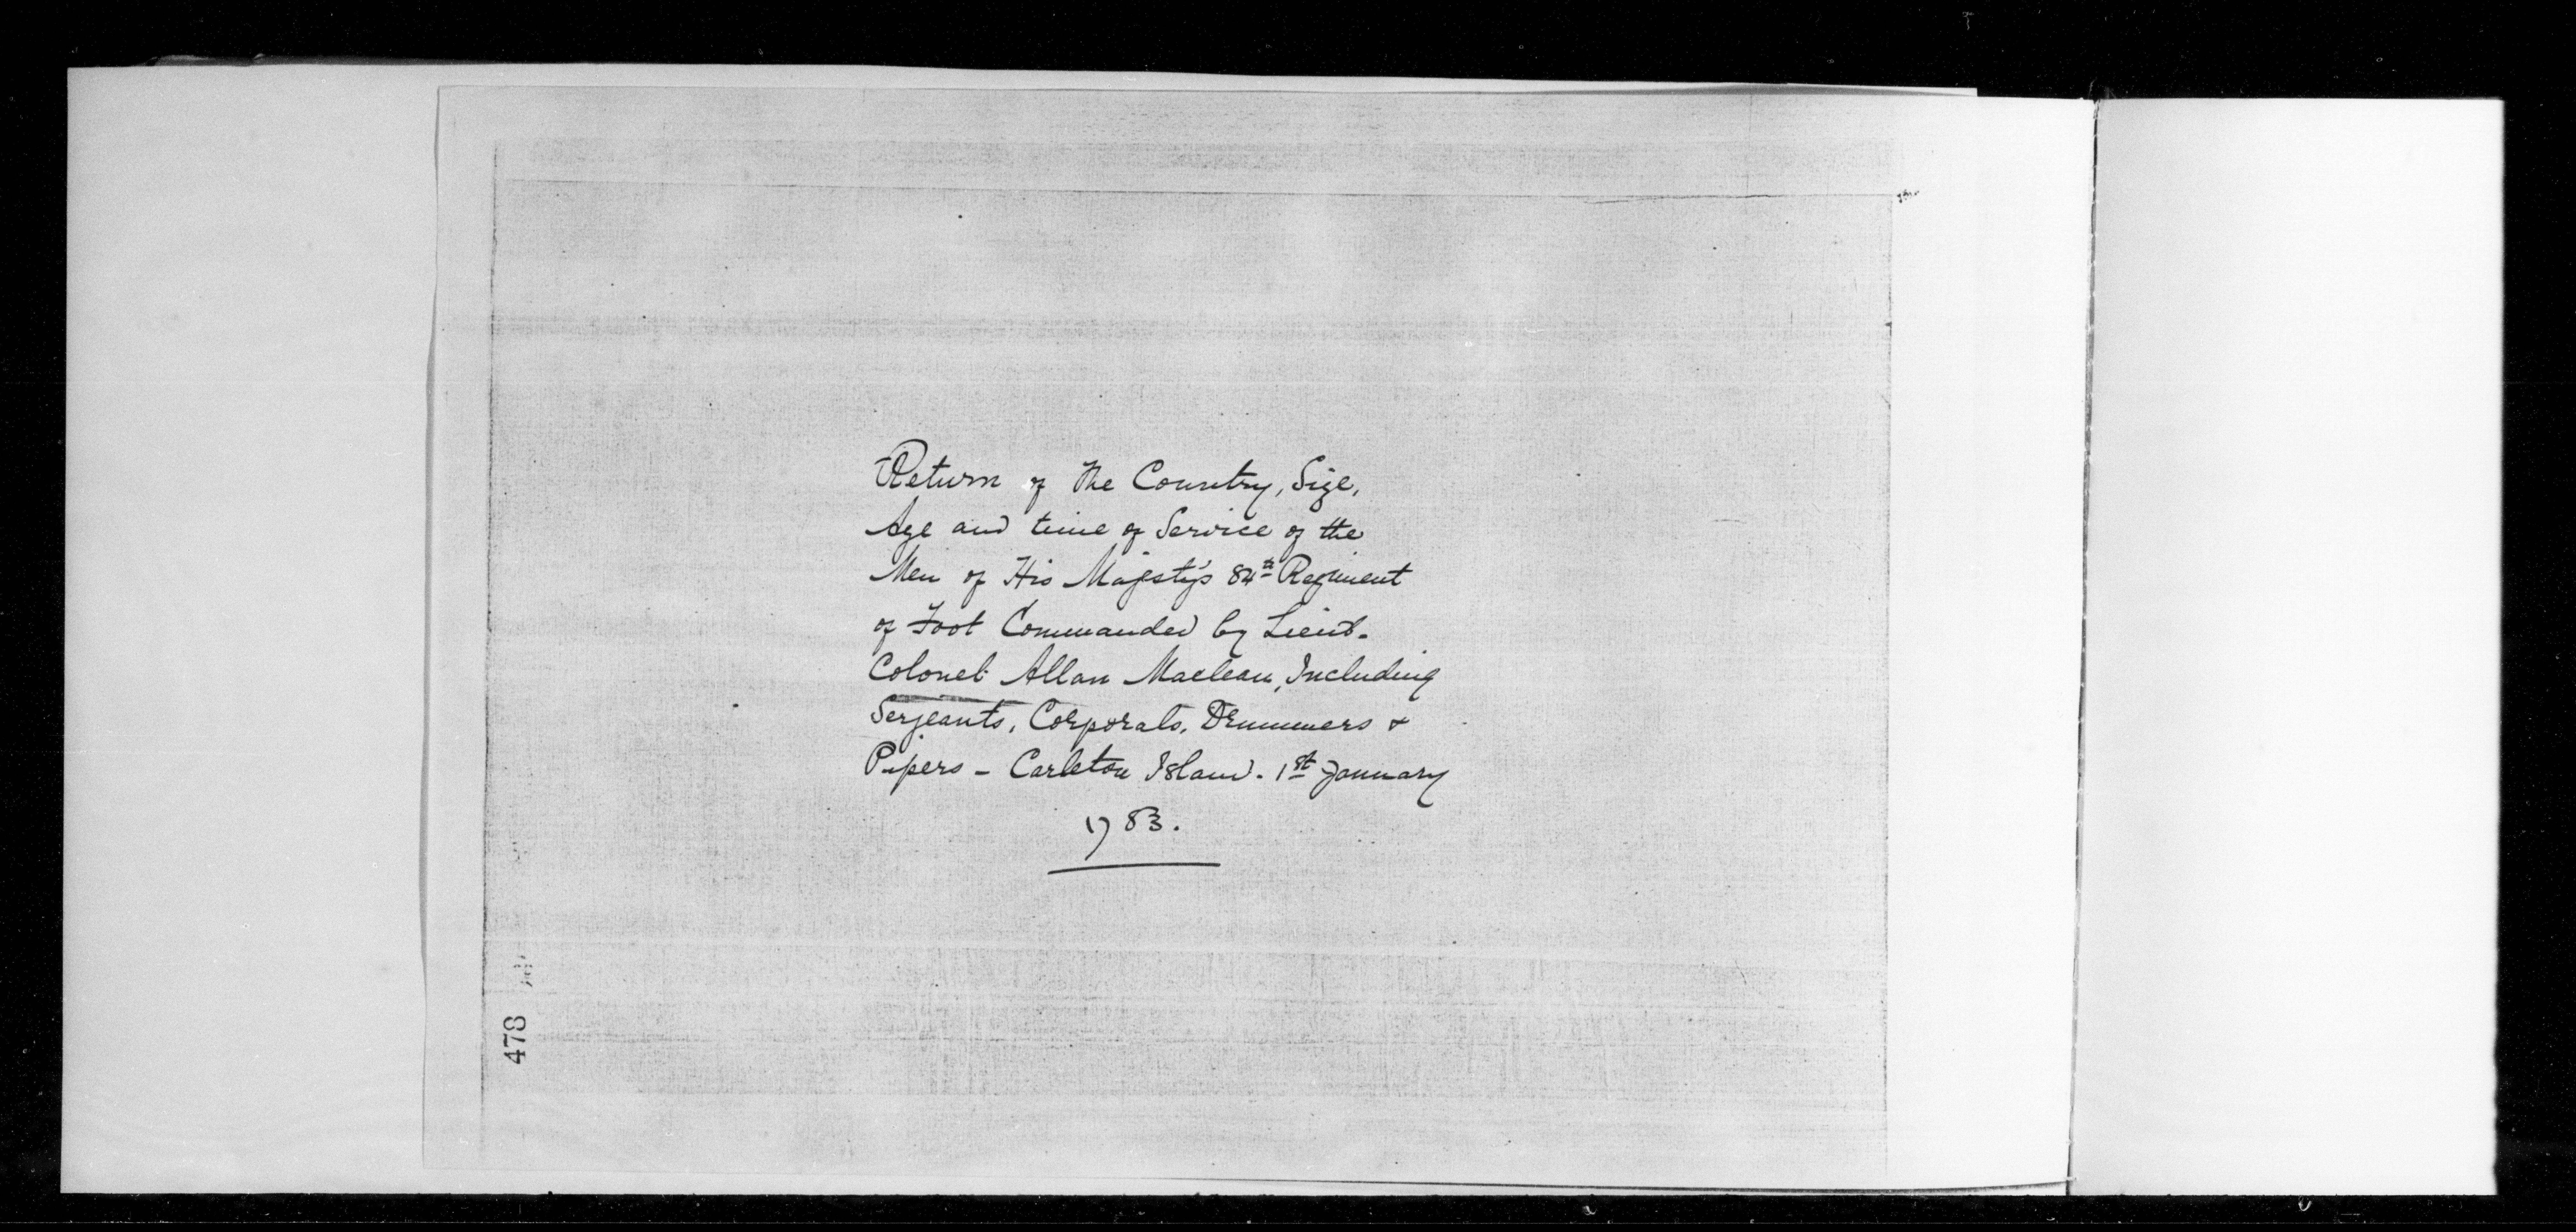 Return of the Country, Size,
Age and time of Service of the
Men of His Majesty's 84th Regiment
of Foot Commanded by Lieut.
Colonel Allan Maclean, Including
Serjeants, Corporals, Drummers &
Pipers - Carleton Island. 1st January
1783.
478